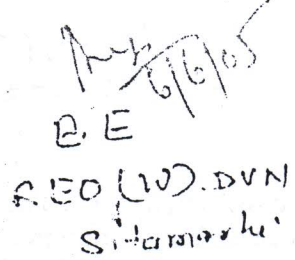 6/6/05
E.E
REO (W). DVN
Sitamarhi